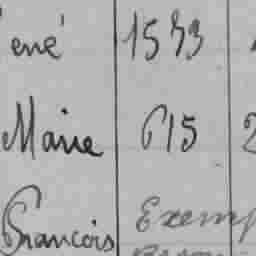 ené 1533
Marie 615 2
Francois Exemp